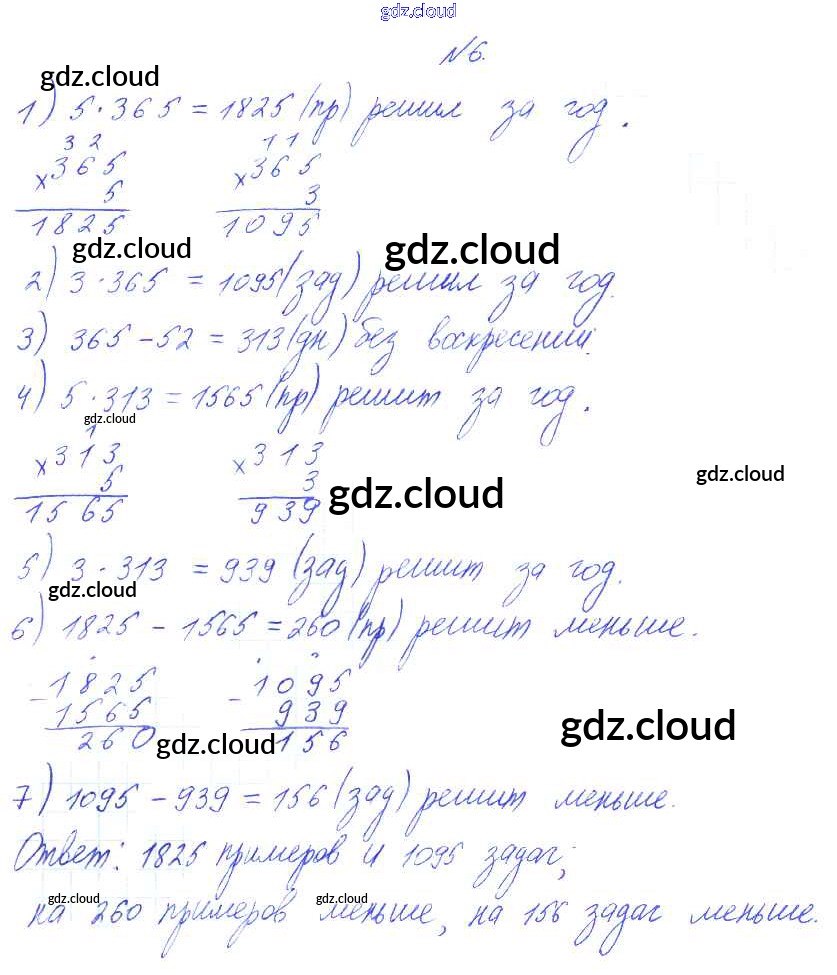 gdz.cloud
№6.
gdz.cloud
1) 5·365=1825 (пр) решил за год.
3 2 1 1
×365 ×365
5 3
1825 1095
gdz.cloud gdz.cloud
2) 3·365 = 1095 (зад) решил за год.
3) 365-52=313 (дн) без воскресений.
4) 5·313=1565 (пр) решит за год.
gdz.cloud
1
×313 ×313
5 3
gdz.cloud gdz.cloud
1565 939
5) 3·313 = 939 (зад) решит за год.
gdz.cloud
6) 1825-1565=260 (пр) решит меньше.
-1825 -1095
1565 939
260 156
gdz.cloud gdz.cloud
7) 1095-939=156 (зад) решит меньше.
Ответ: 1825 примеров и 1095 задач;
gdz.cloud gdz.cloud gdz.cloud
на 260 примеров меньше, на 156 задач меньше.